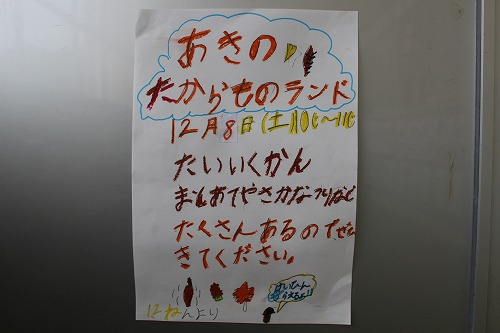 あきの
たからものランド
12月8日(土)10じ〜11じ
たいいくかん
まとあてやさかなつりなど
たくさんあるのでぜひ
きてください。
けいひん
もらえるよ!!
12ねんより